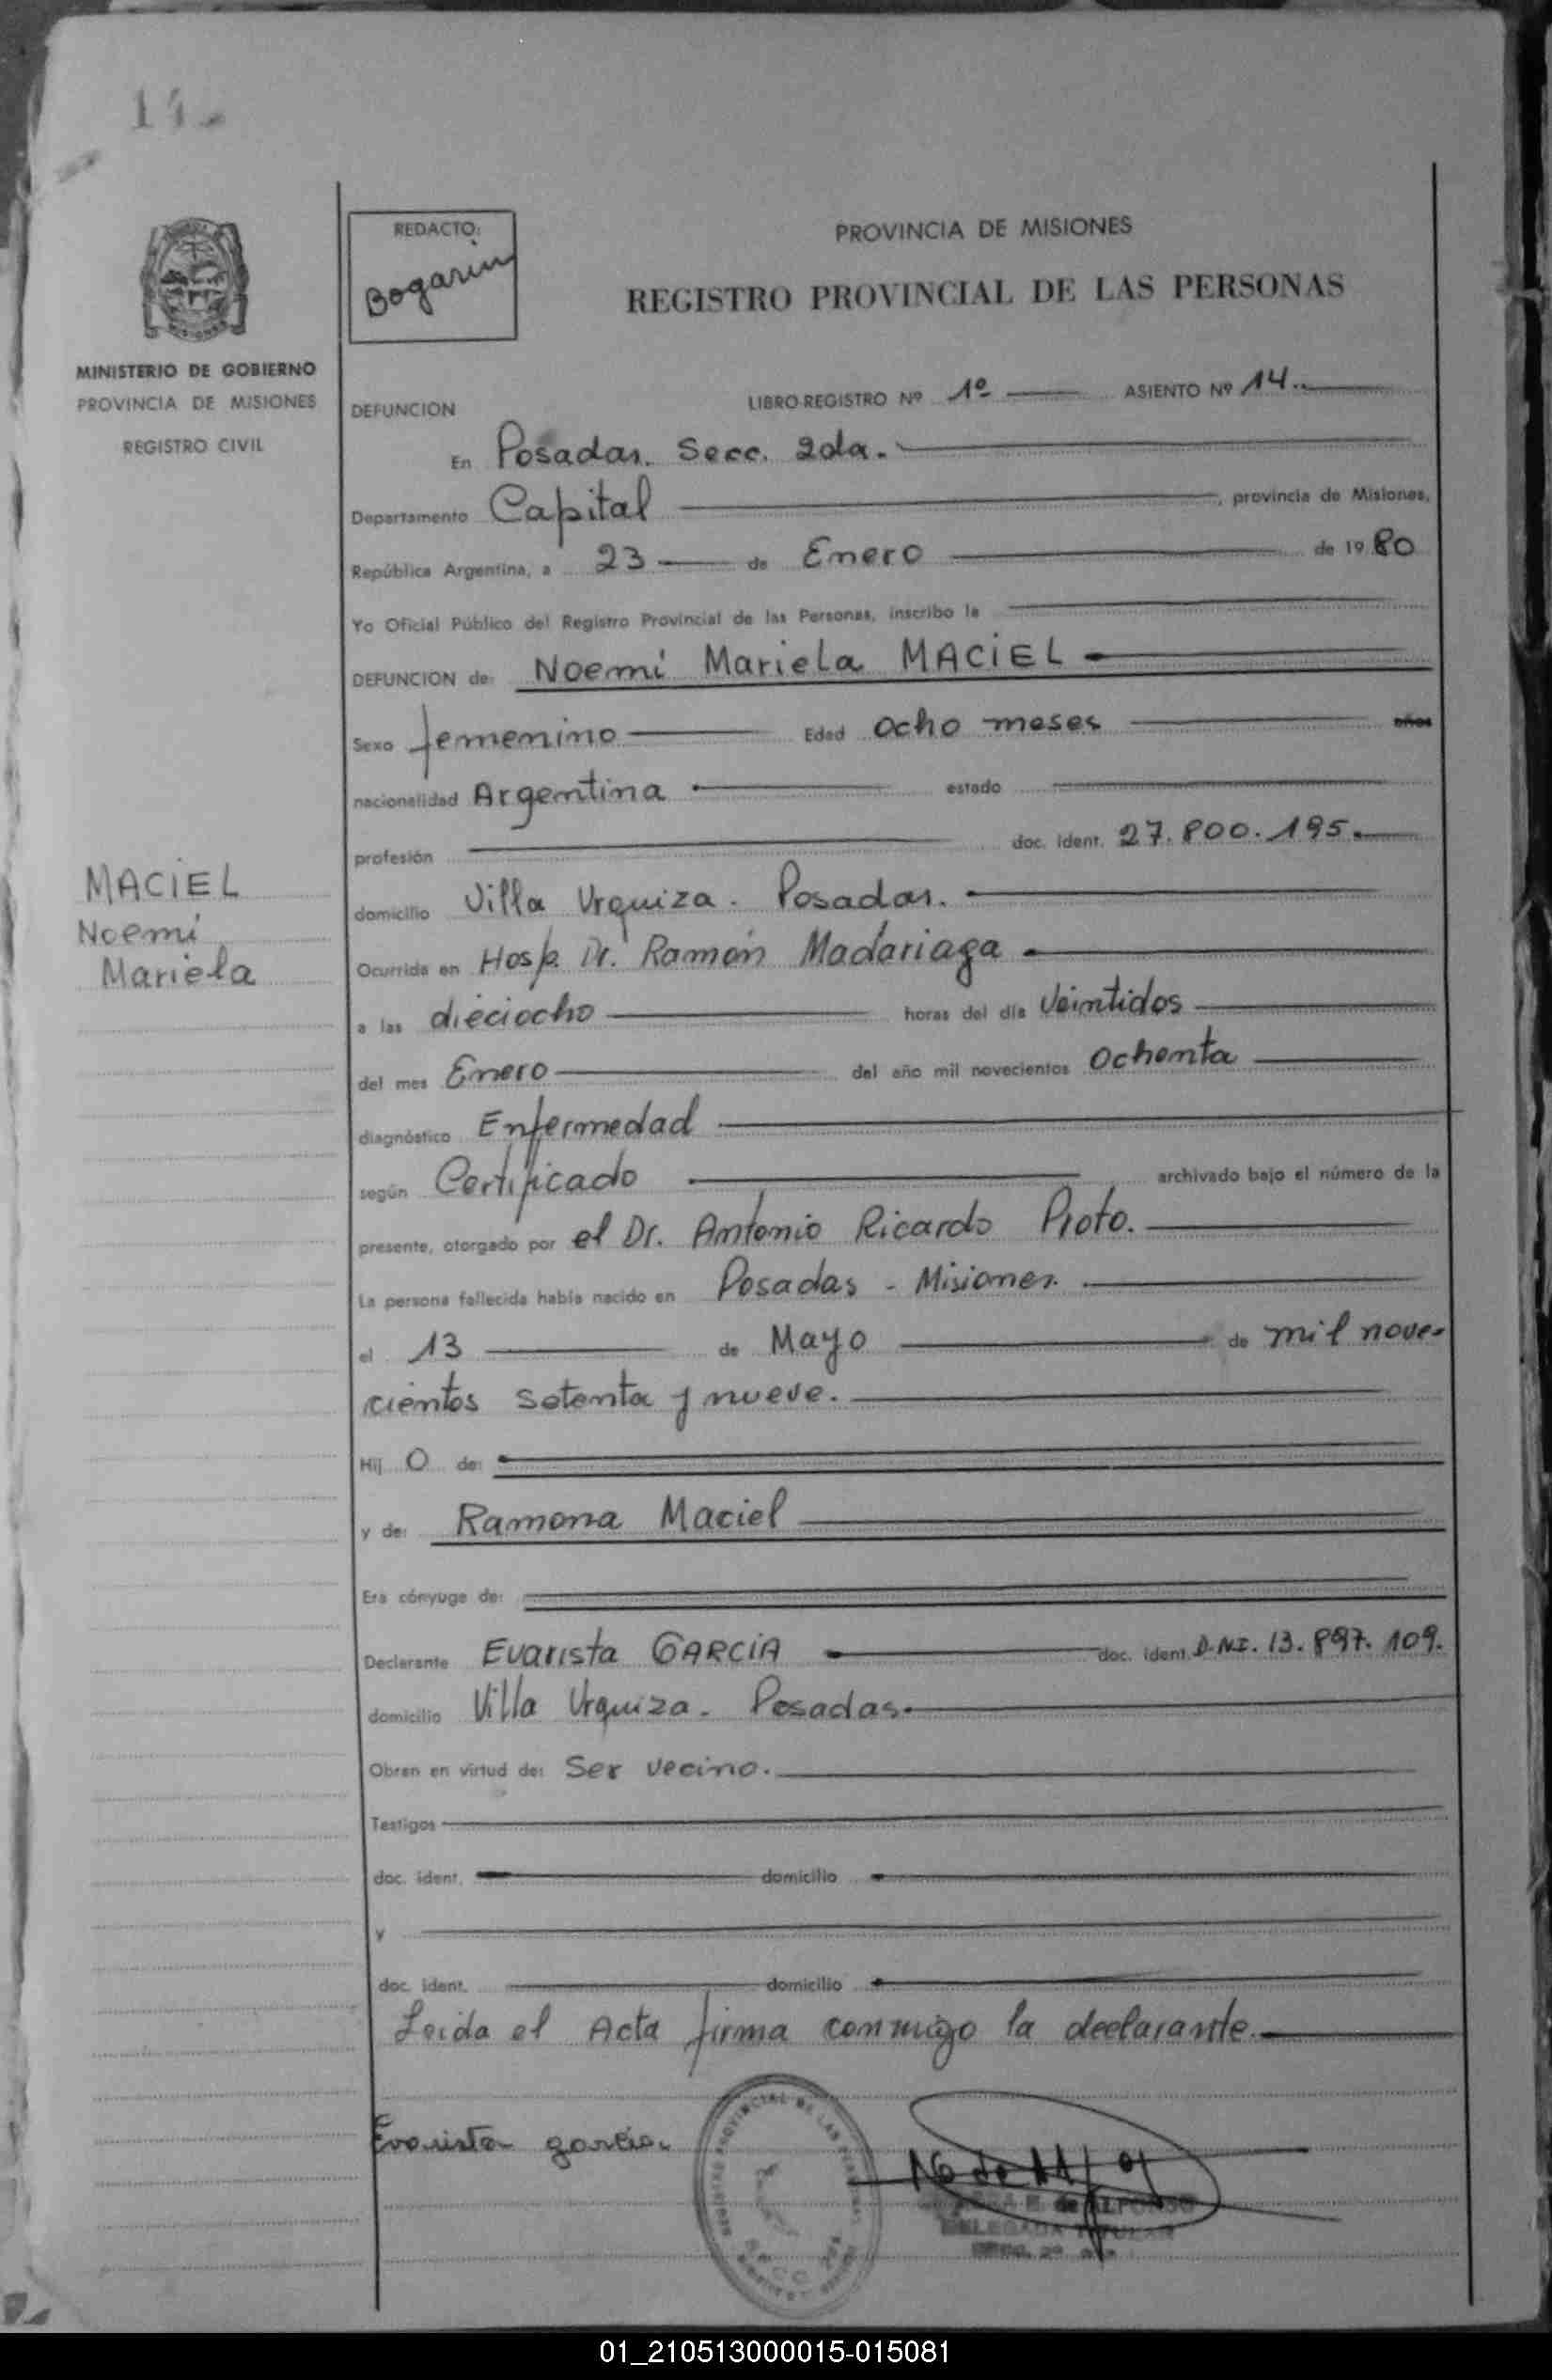 14.
REDACTO:
Bogarin
PROVINCIA DE MISIONES
REGISTRO PROVINCIAL DE LAS PERSONAS
MINISTERIO DE GOBIERNO
PROVINCIA DE MISIONES
REGISTRO CIVIL
DEFUNCION LIBRO-REGISTRO Nº 1º ASIENTO Nº 14.
En Posadas. Secc. 2da.
Departamento Capital, provincia de Misiones,
República Argentina, a 23 de Enero de 1980
Yo Oficial Público del Registro Provincial de las Personas, inscribo la
DEFUNCION de: Noemi Mariela MACIEL
Sexo femenino Edad ocho meses años
nacionalidad Argentina estado
profesión doc. ident. 27.800.195.
MACIEL
Noemi
Mariela
domicilio Villa Urquiza. Posadas.
Ocurrida en Hosp. Dr. Ramón Madariaga
a las dieciocho horas del día veintidos
del mes Enero del año mil novecientos ochenta
diagnóstico Enfermedad
según Certificado archivado bajo el número de la
presente, otorgado por el Dr. Antonio Ricardo Proto.
La persona fallecida había nacido en Posadas - Misiones.
el 13 de Mayo de mil nove-
cientos setenta y nueve.
Hij o de:
y de: Ramona Maciel
Era cónyuge de:
Declarante Evarista GARCIA doc. ident. D.N.I. 13.897.109.
domicilio Villa Urquiza. Posadas.
Obran en virtud de: Ser vecino.
Testigos
doc. ident. domicilio
y
doc. ident. domicilio
Leida el Acta firma conmigo la declarante.
Evarista garcia
de ALFONSO
DELEGADA TITULAR
01_210513000015-015081